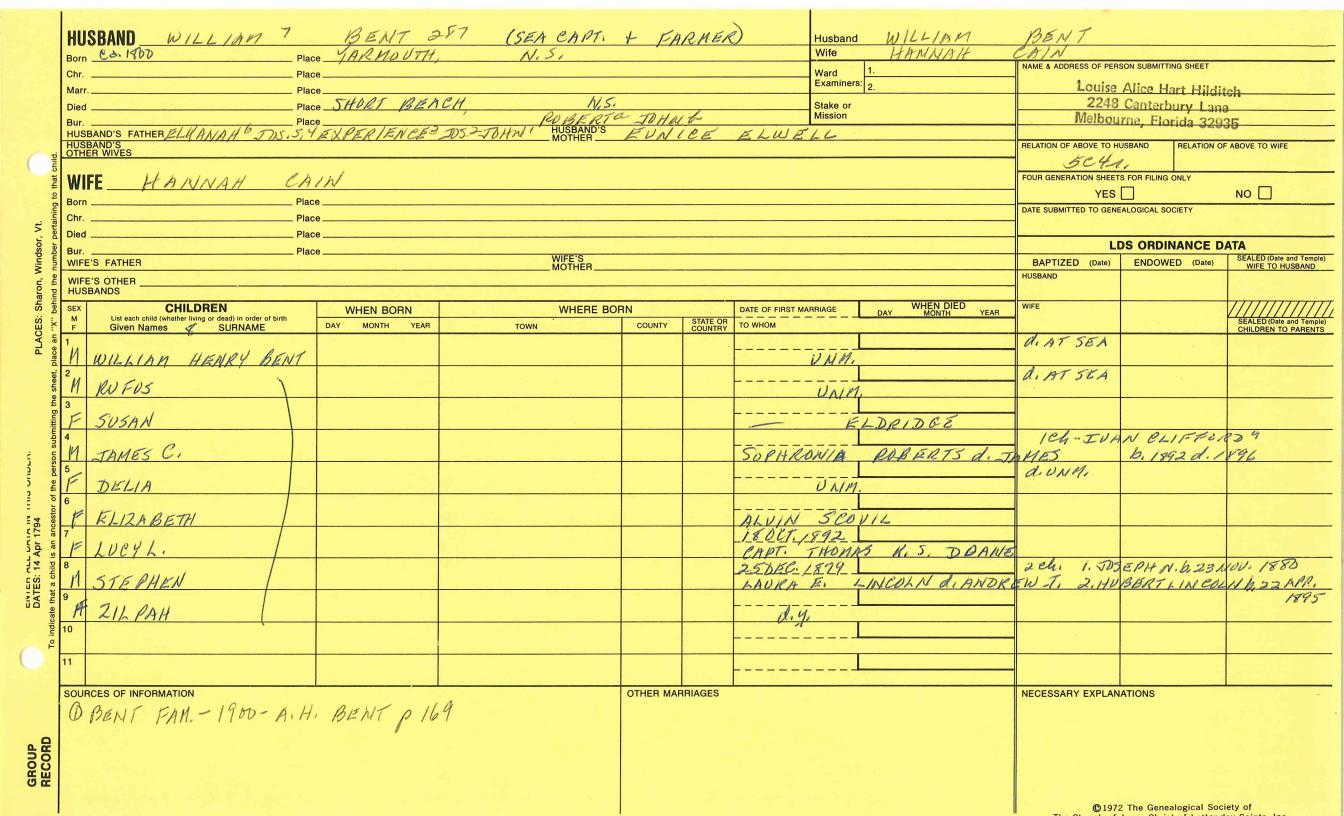 HUSBAND WILLIAM 7 BENT 287 (SEA CAPT. + FARMER)
Born ca. 1800 Place YARMOUTH, N.S.
Chr. Place
Marr. Place
Died Place SHORT BEACH, N.S.
Bur. Place
ROBERT JOHN
HUSBAND'S FATHER ELKANAH6 JOS.5,4 EXPERIENCE3 JOS2 JOHN1 HUSBAND'S MOTHER EUNICE ELWELL
HUSBAND'S OTHER WIVES
Husband WILLIAM BENT
Wife HANNAH CAIN
Ward Examiners: 1.
2.
Stake or Mission
NAME & ADDRESS OF PERSON SUBMITTING SHEET
Louise Alice Hart Hilditch
2248 Canterbury Lane
Melbourne, Florida 32935
RELATION OF ABOVE TO HUSBAND RELATION OF ABOVE TO WIFE
5C4r.
FOUR GENERATION SHEETS FOR FILING ONLY
YES NO
DATE SUBMITTED TO GENEALOGICAL SOCIETY
WIFE HANNAH CAIN
Born Place
Chr. Place
Died Place
Bur. Place
WIFE'S FATHER WIFE'S MOTHER
WIFE'S OTHER HUSBANDS
LDS ORDINANCE DATA
BAPTIZED (Date) ENDOWED (Date) SEALED (Date and Temple) WIFE TO HUSBAND
HUSBAND
WIFE
SEALED (Date and Temple) CHILDREN TO PARENTS
SEX M F
CHILDREN
List each child (whether living or dead) in order of birth
Given Names SURNAME
WHEN BORN
DAY MONTH YEAR
WHERE BORN
TOWN COUNTY STATE OR COUNTRY
DATE OF FIRST MARRIAGE
TO WHOM
WHEN DIED
DAY MONTH YEAR
1 M WILLIAM HENRY BENT UNM. d. AT SEA
2 M RUFUS UNM. d. AT SEA
3 F SUSAN — ELDRIDGE
4 M JAMES C. SOPHRONIA ROBERTS d. JAMES
1ch - IVAN CLIFFORD
b. 1892 d. 1896
5 F DELIA UNM. d. UNM.
6 F ELIZABETH ALVIN SCOVIL
7 F LUCY L. 18 OCT. 1892
CAPT. THOMAS K. S. DOANE
8 M STEPHEN 25 DEC. 1879
LAURA E. LINCOLN d. ANDREW J.
2 ch. 1. JOSEPH N. b. 23 NOV. 1880
2. HUBERT LINCOLN b. 22 APR. 1895
9 F ZILPAH d.y.
10
11
SOURCES OF INFORMATION
① BENT FAM. - 1900 - A.H. BENT p 169
OTHER MARRIAGES
NECESSARY EXPLANATIONS
©1972 The Genealogical Society of
PLACES: Sharon, Windsor, Vt.
DATES: 14 Apr 1794
To indicate that a child is an ancestor of the person submitting the sheet, place an "X" behind the number pertaining to that child.
GROUP RECORD